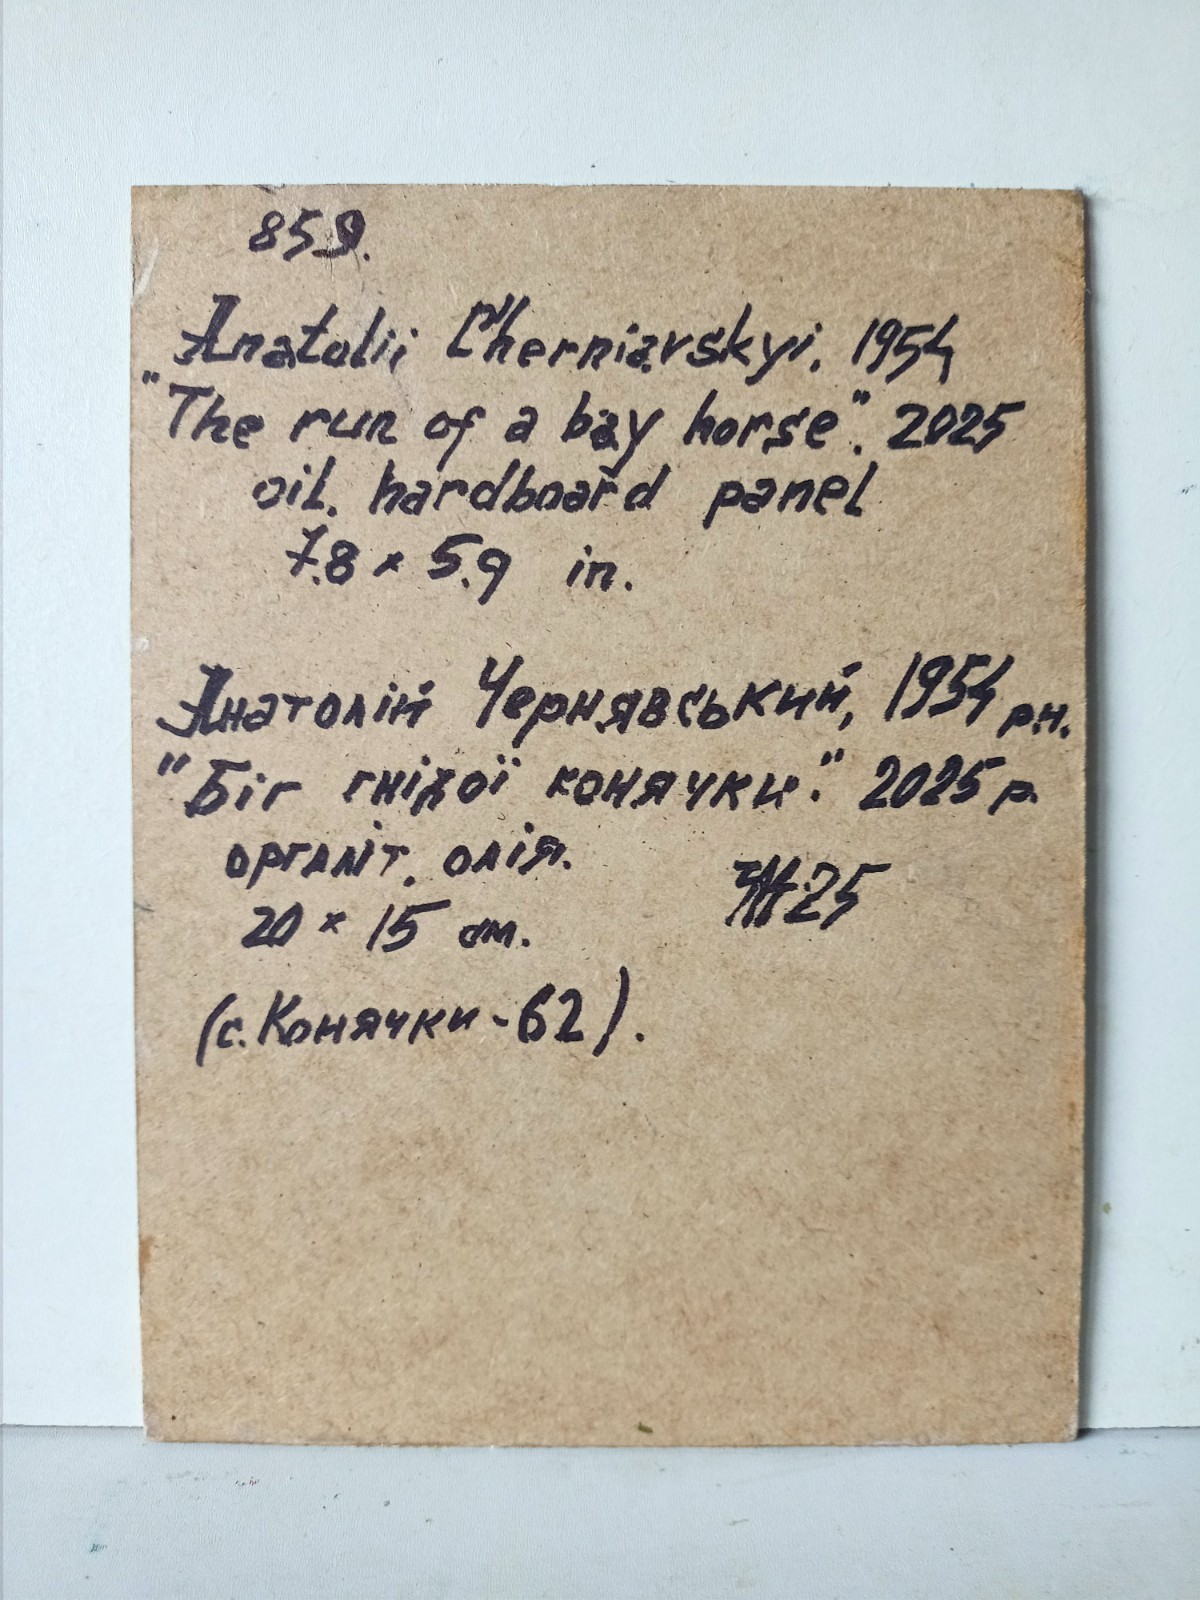 859.
Anatolii Cherniavskyi, 1954
"The run of a bay horse". 2025
oil. hardboard panel
7.8 × 5.9 in.
Анатолій Чернявський, 1954 р.н.
"Біг гнідої конячки". 2025 р.
оргаліт. олія.
20 × 15 см.
25
(с. Конячки - 62).